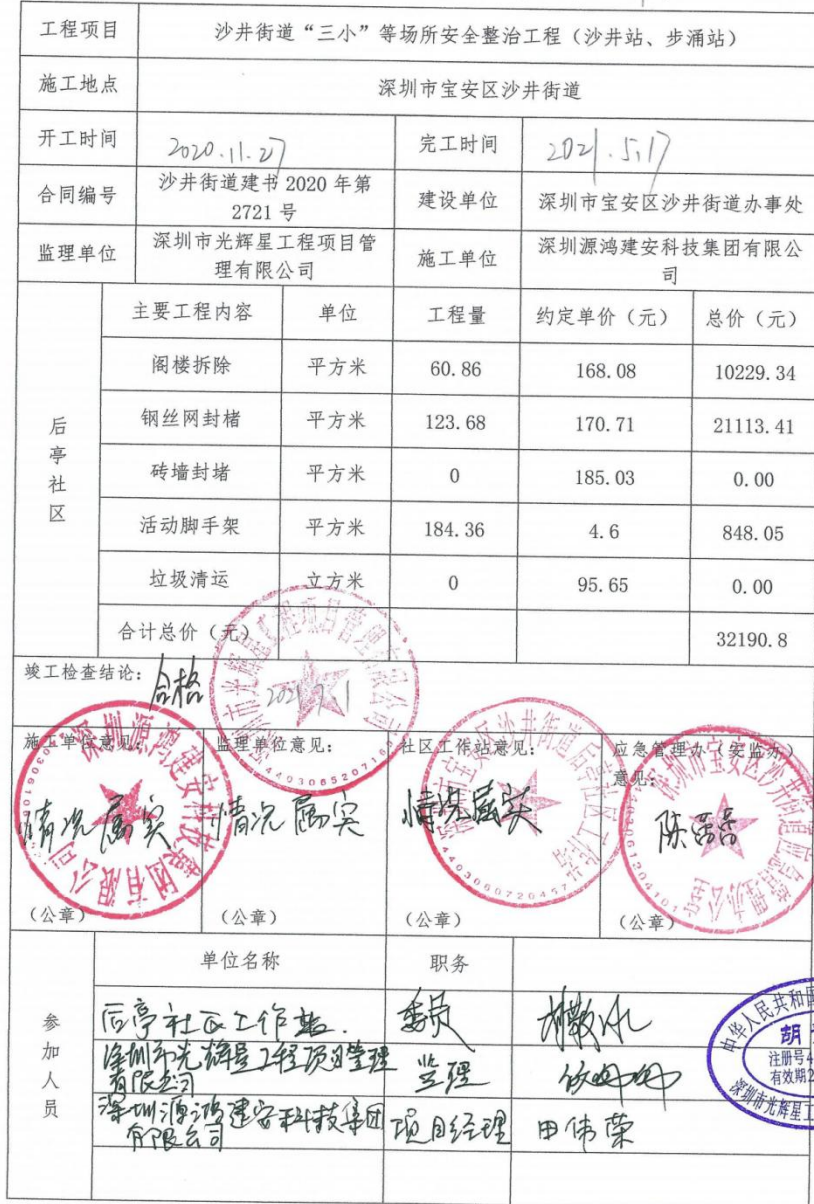 工程项目 沙井街道“三小”等场所安全整治工程（沙井站、步涌站）
施工地点 深圳市宝安区沙井街道
开工时间 2020.11.27 完工时间 2021.5.17
合同编号 沙井街道建书 2020 年第
2721 号 建设单位 深圳市宝安区沙井街道办事处
监理单位 深圳市光辉星工程项目管
理有限公司 施工单位 深圳源鸿建安科技集团有限公
司
后亭社区
主要工程内容 单位 工程量 约定单价（元） 总价（元）
阁楼拆除 平方米 60.86 168.08 10229.34
钢丝网封楮 平方米 123.68 170.71 21113.41
砖墙封堵 平方米 0 185.03 0.00
活动脚手架 平方米 184.36 4.6 848.05
垃圾清运 立方米 0 95.65 0.00
合计总价（元） 32190.8
竣工检查结论：合格
深圳市光辉星工程项目管理有限公司
施工单位意见： 监理单位意见： 社区工作站意见： 应急管理办（安监办）
意见：
情况属实 情况属实 情况属实
深圳源鸿建安科技集团有限公司
（公章） （公章） （公章） （公章）
参加人员
单位名称 职务
后亭社区工作站. 委员
深圳市光辉星工程项目管理
有限公司 监理
深圳源鸿建安科技集团
有限公司 项目经理 田伟荣
中华人民共和国
胡
注册号4
有效期2
深圳市光辉星工